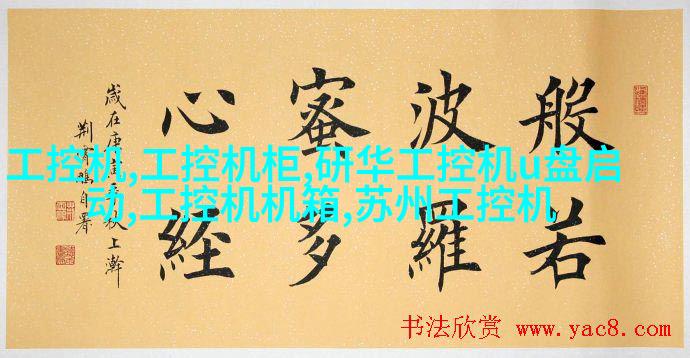 般若
波羅
蜜多
心経
歲在庚寅季秋上澣
荆霄鵬自署
工控机,工控机柜,研华工控机u盘启
动,工控机机箱,苏州工控机
书法欣赏 www.yac8.com